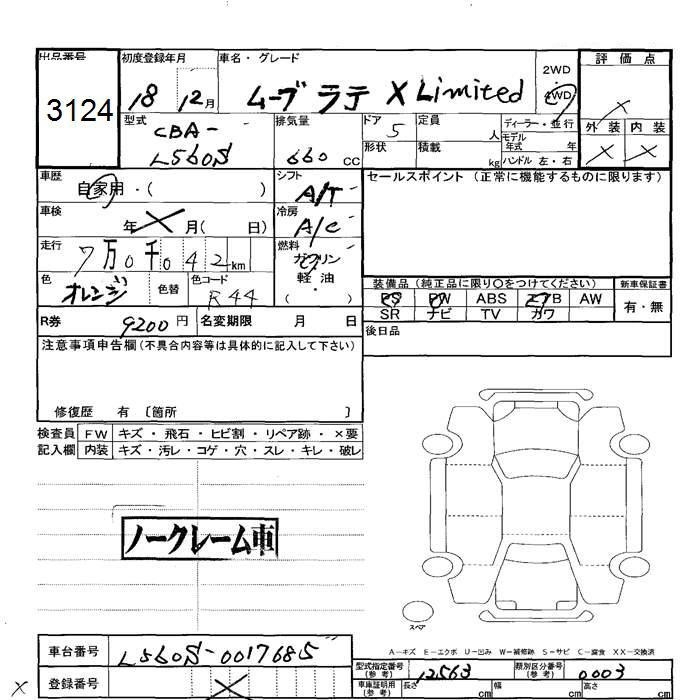 出品番号 初度登録年月 車名・グレード 2WD 評価点
3124 18 12月 ムーブ ラテ X Limited 4WD ×
型式 排気量 ドア 定員 ディーラー・並行 外装 内装
CBA- 5 人 モデル年式 年 × ×
L560S 660 CC 形状 積載 kg ハンドル 左・右
車歴 シフト セールスポイント (正常に機能するものに限ります)
自家用・( ) A/T
車検 冷房
年 × 月( 日) A/C
走行 燃料
7万0千042km ガソリン
色 色替 色コード 軽油
オレンジ R44 ( ・ )
装備品 (純正品に限り○をつけてください) 新車保証書
PS PW ABS エアB AW 有・無
SR ナビ TV カワ
R券 9200円 名変期限 月 日
後日品
注意事項申告欄(不具合内容等は具体的に記入して下さい)
修復歴 有 〔箇所 〕
検査員 FW キズ・飛石・ヒビ割・リペア跡・×要
記入欄 内装 キズ・汚レ・コゲ・穴・スレ・キレ・破レ
ノークレーム車
スペア
A－キズ E－エクボ U－凹み W－補修跡 S－サビ C－腐食 XX－交換済
車台番号 L560S-0017685
型式指定番号(参考) 12563 類別区分番号(参考) 0003
登録番号 ×
車庫証明用(参考) 長さ cm 幅 cm 高さ cm
×